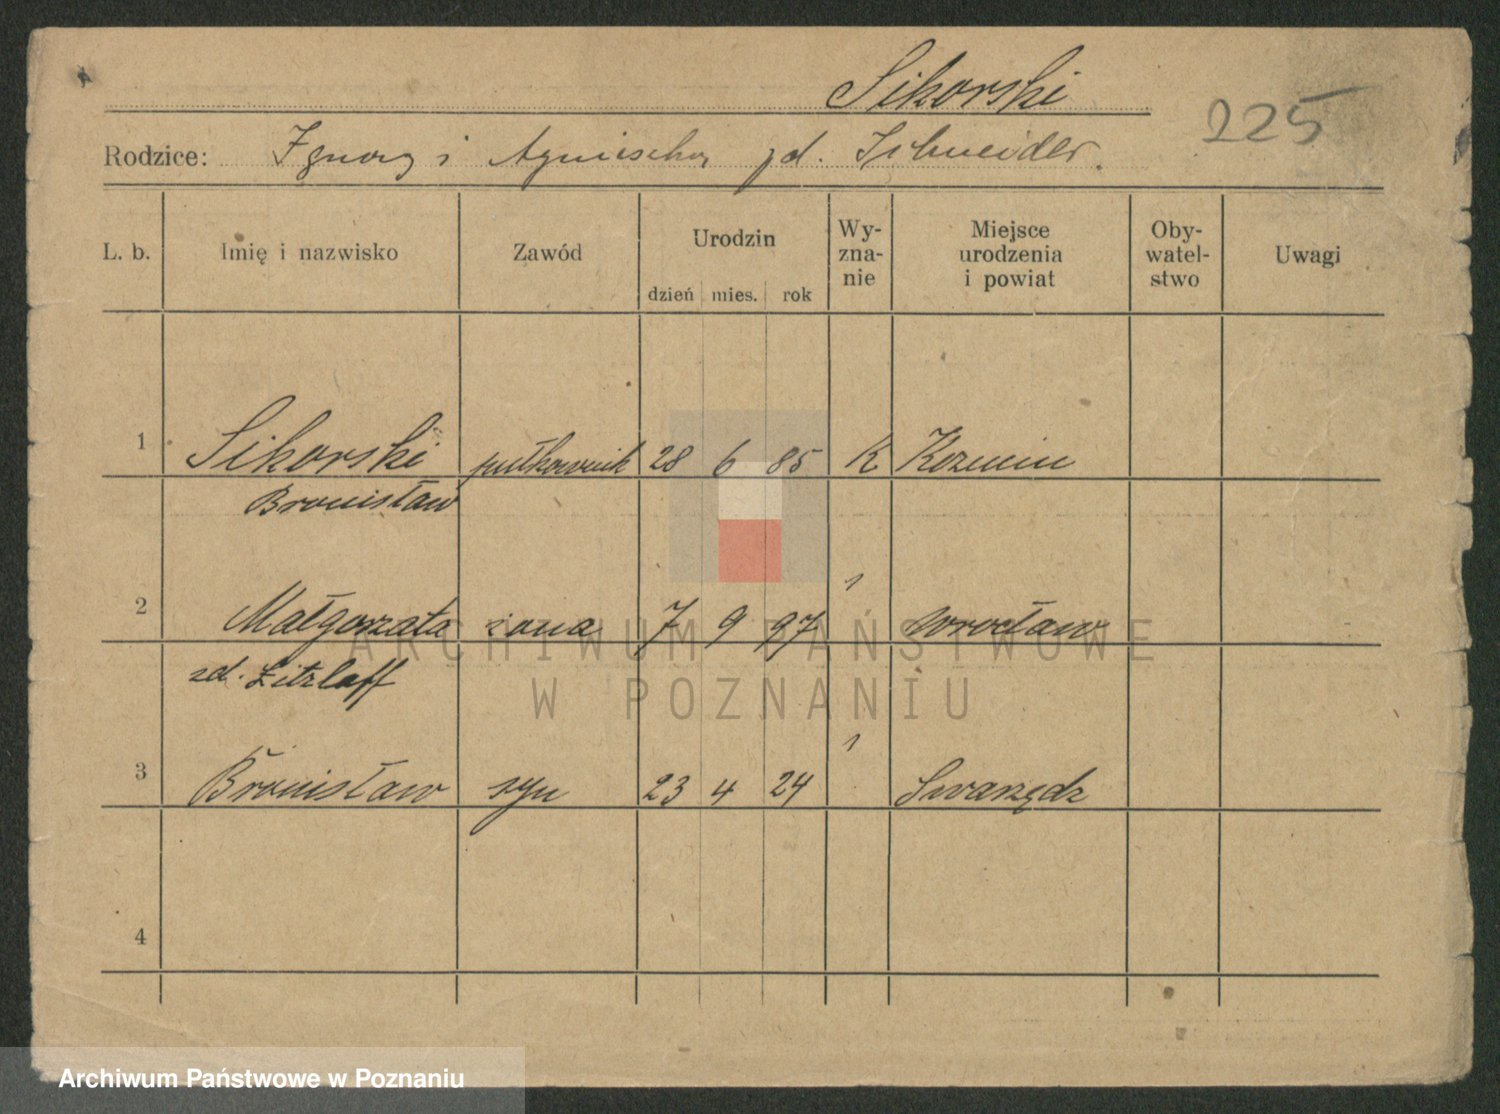 Sikorski
225
Rodzice: Ignacy i Agnieszka zd. Schneider.
L. b. Imię i nazwisko Zawód Urodzin dzień mies. rok Wy-zna-nie Miejsce urodzenia i powiat Oby-watel-stwo Uwagi
1 Sikorski pułkownik 28 6 85 K Kozmin
Bronisław
2 Małgorzata żona 7 9 97 Wrocław
zd. Litzlaff
3 Bronisław syn 23 4 24 Swarzędz
4
ARCHIWUM PAŃSTWOWE
W POZNANIU
Archiwum Państwowe w Poznaniu